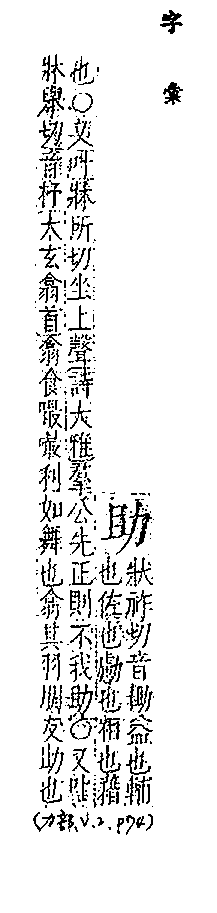 字彙
助
狀祚切音鋤益也輔
也佐也勴也佑也藉
也○又叶牀所切坐上聲詩大雅羣公先正則不我助○又叶
牀舉切音杼太玄翕首翕食嘬嘬利如舞也翕其羽朋友助也
(力部, V.2, P74)